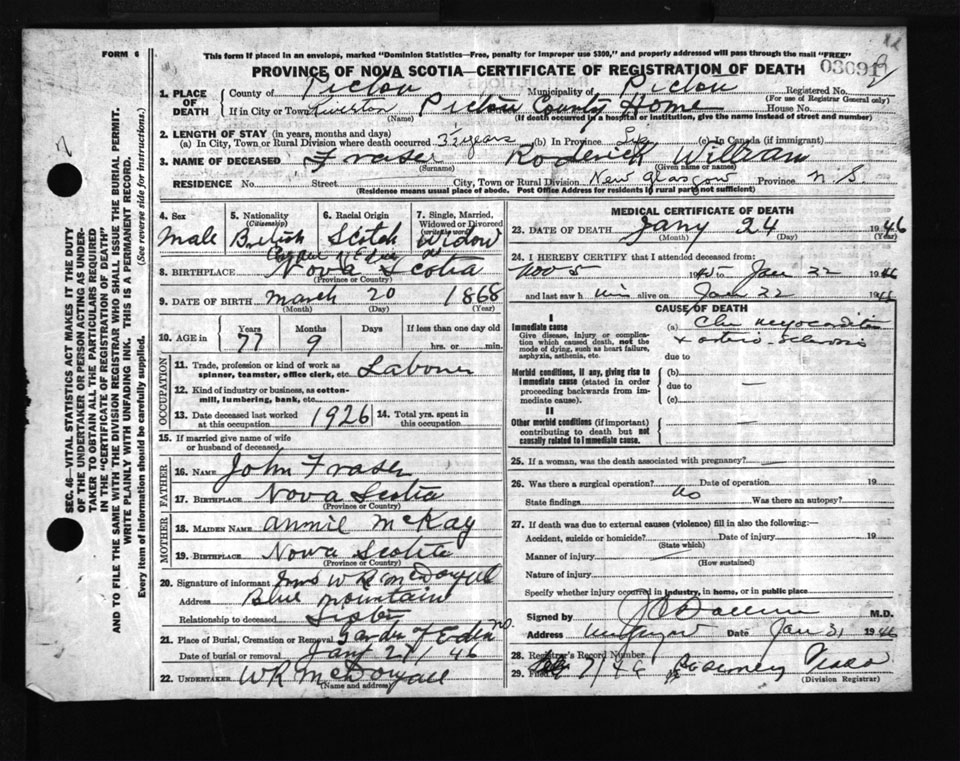 FORM 6
This form if placed in an envelope, marked "Dominion Statistics—Free, penalty for improper use $300," and properly addressed will pass through the mail "FREE"
PROVINCE OF NOVA SCOTIA—CERTIFICATE OF REGISTRATION OF DEATH
03091
1. PLACE OF DEATH
County of Pictou Municipality of Pictou Registered No.
(For use of Registrar General only)
If in City or Town Riverton Pictou County Home House No.
(Name) (If death occurred in a hospital or institution, give the name instead of street and number)
2. LENGTH OF STAY (in years, months and days)
(a) In City, Town or Rural Division where death occurred 3½ years (b) In Province Life (c) In Canada (if immigrant)
3. NAME OF DECEASED Fraser Roderick William
(Surname) (Given name or names)
RESIDENCE No. Street City, Town or Rural Division New Glasgow Province N.S.
(Residence means usual place of abode. Post Office Address for residents in rural parts not sufficient)
4. Sex Male
5. Nationality (Citizenship) British
6. Racial Origin Scotch
7. Single, Married, Widowed or Divorced (write the word) Widow
8. BIRTHPLACE Garden of Eden Nova Scotia
(Province or Country)
9. DATE OF BIRTH March 20 1868
(Month) (Day) (Year)
10. AGE in Years 77 Months 9 Days If less than one day old hrs. or min.
OCCUPATION
11. Trade, profession or kind of work as spinner, teamster, office clerk, etc. Laborer
12. Kind of industry or business, as cotton-mill, lumbering, bank, etc.
13. Date deceased last worked at this occupation 1926
14. Total yrs. spent in this occupation
15. If married give name of wife or husband of deceased
FATHER
16. NAME John Fraser
17. BIRTHPLACE Nova Scotia
(Province or Country)
MOTHER
18. MAIDEN NAME Annie McKay
19. BIRTHPLACE Nova Scotia
(Province or Country)
20. Signature of informant Mrs W R McDougall
Address Blue Mountain
Relationship to deceased Sister
21. Place of Burial, Cremation or Removal Garden of Eden
Date of burial or removal Jany 27/46
22. UNDERTAKER W R McDougall
(Name and address)
MEDICAL CERTIFICATE OF DEATH
23. DATE OF DEATH Jany 24 1946
(Month) (Day) (Year)
24. I HEREBY CERTIFY that I attended deceased from:
Nov 5 1945 to Jan 22 1946
and last saw him alive on Jan 22 1946
CAUSE OF DEATH
I
Immediate cause
Give disease, injury or complication which caused death, not the mode of dying, such as heart failure, asphyxia, asthenia, etc.
(a) Chr myocarditis
& arterio-sclerosis
due to
Morbid conditions, if any, giving rise to immediate cause (stated in order proceeding backwards from immediate cause).
(b)
due to —
(c)
II
Other morbid conditions (if important) contributing to death but not causally related to immediate cause.
—
25. If a woman, was the death associated with pregnancy? —
26. Was there a surgical operation? no Date of operation 19
State findings Was there an autopsy?
27. If death was due to external causes (violence) fill in also the following:—
Accident, suicide or homicide? Date of injury 19
(State which)
Manner of injury
(How sustained)
Nature of injury
Specify whether injury occurred in industry, in home, or in public place
Signed by M.D.
Address Date Jan 31 1946
28. Registrar's Record Number
29. Filed 7/46
(Division Registrar)
SEC. 46—VITAL STATISTICS ACT MAKES IT THE DUTY
OF THE UNDERTAKER OR PERSON ACTING AS UNDER-
TAKER TO OBTAIN ALL THE PARTICULARS REQUIRED
IN THE "CERTIFICATE OF REGISTRATION OF DEATH"
AND TO FILE THE SAME WITH THE DIVISION REGISTRAR WHO SHALL ISSUE THE BURIAL PERMIT.
WRITE PLAINLY WITH UNFADING INK. THIS IS A PERMANENT RECORD.
Every item of Information should be carefully supplied. (See reverse side for instructions.)